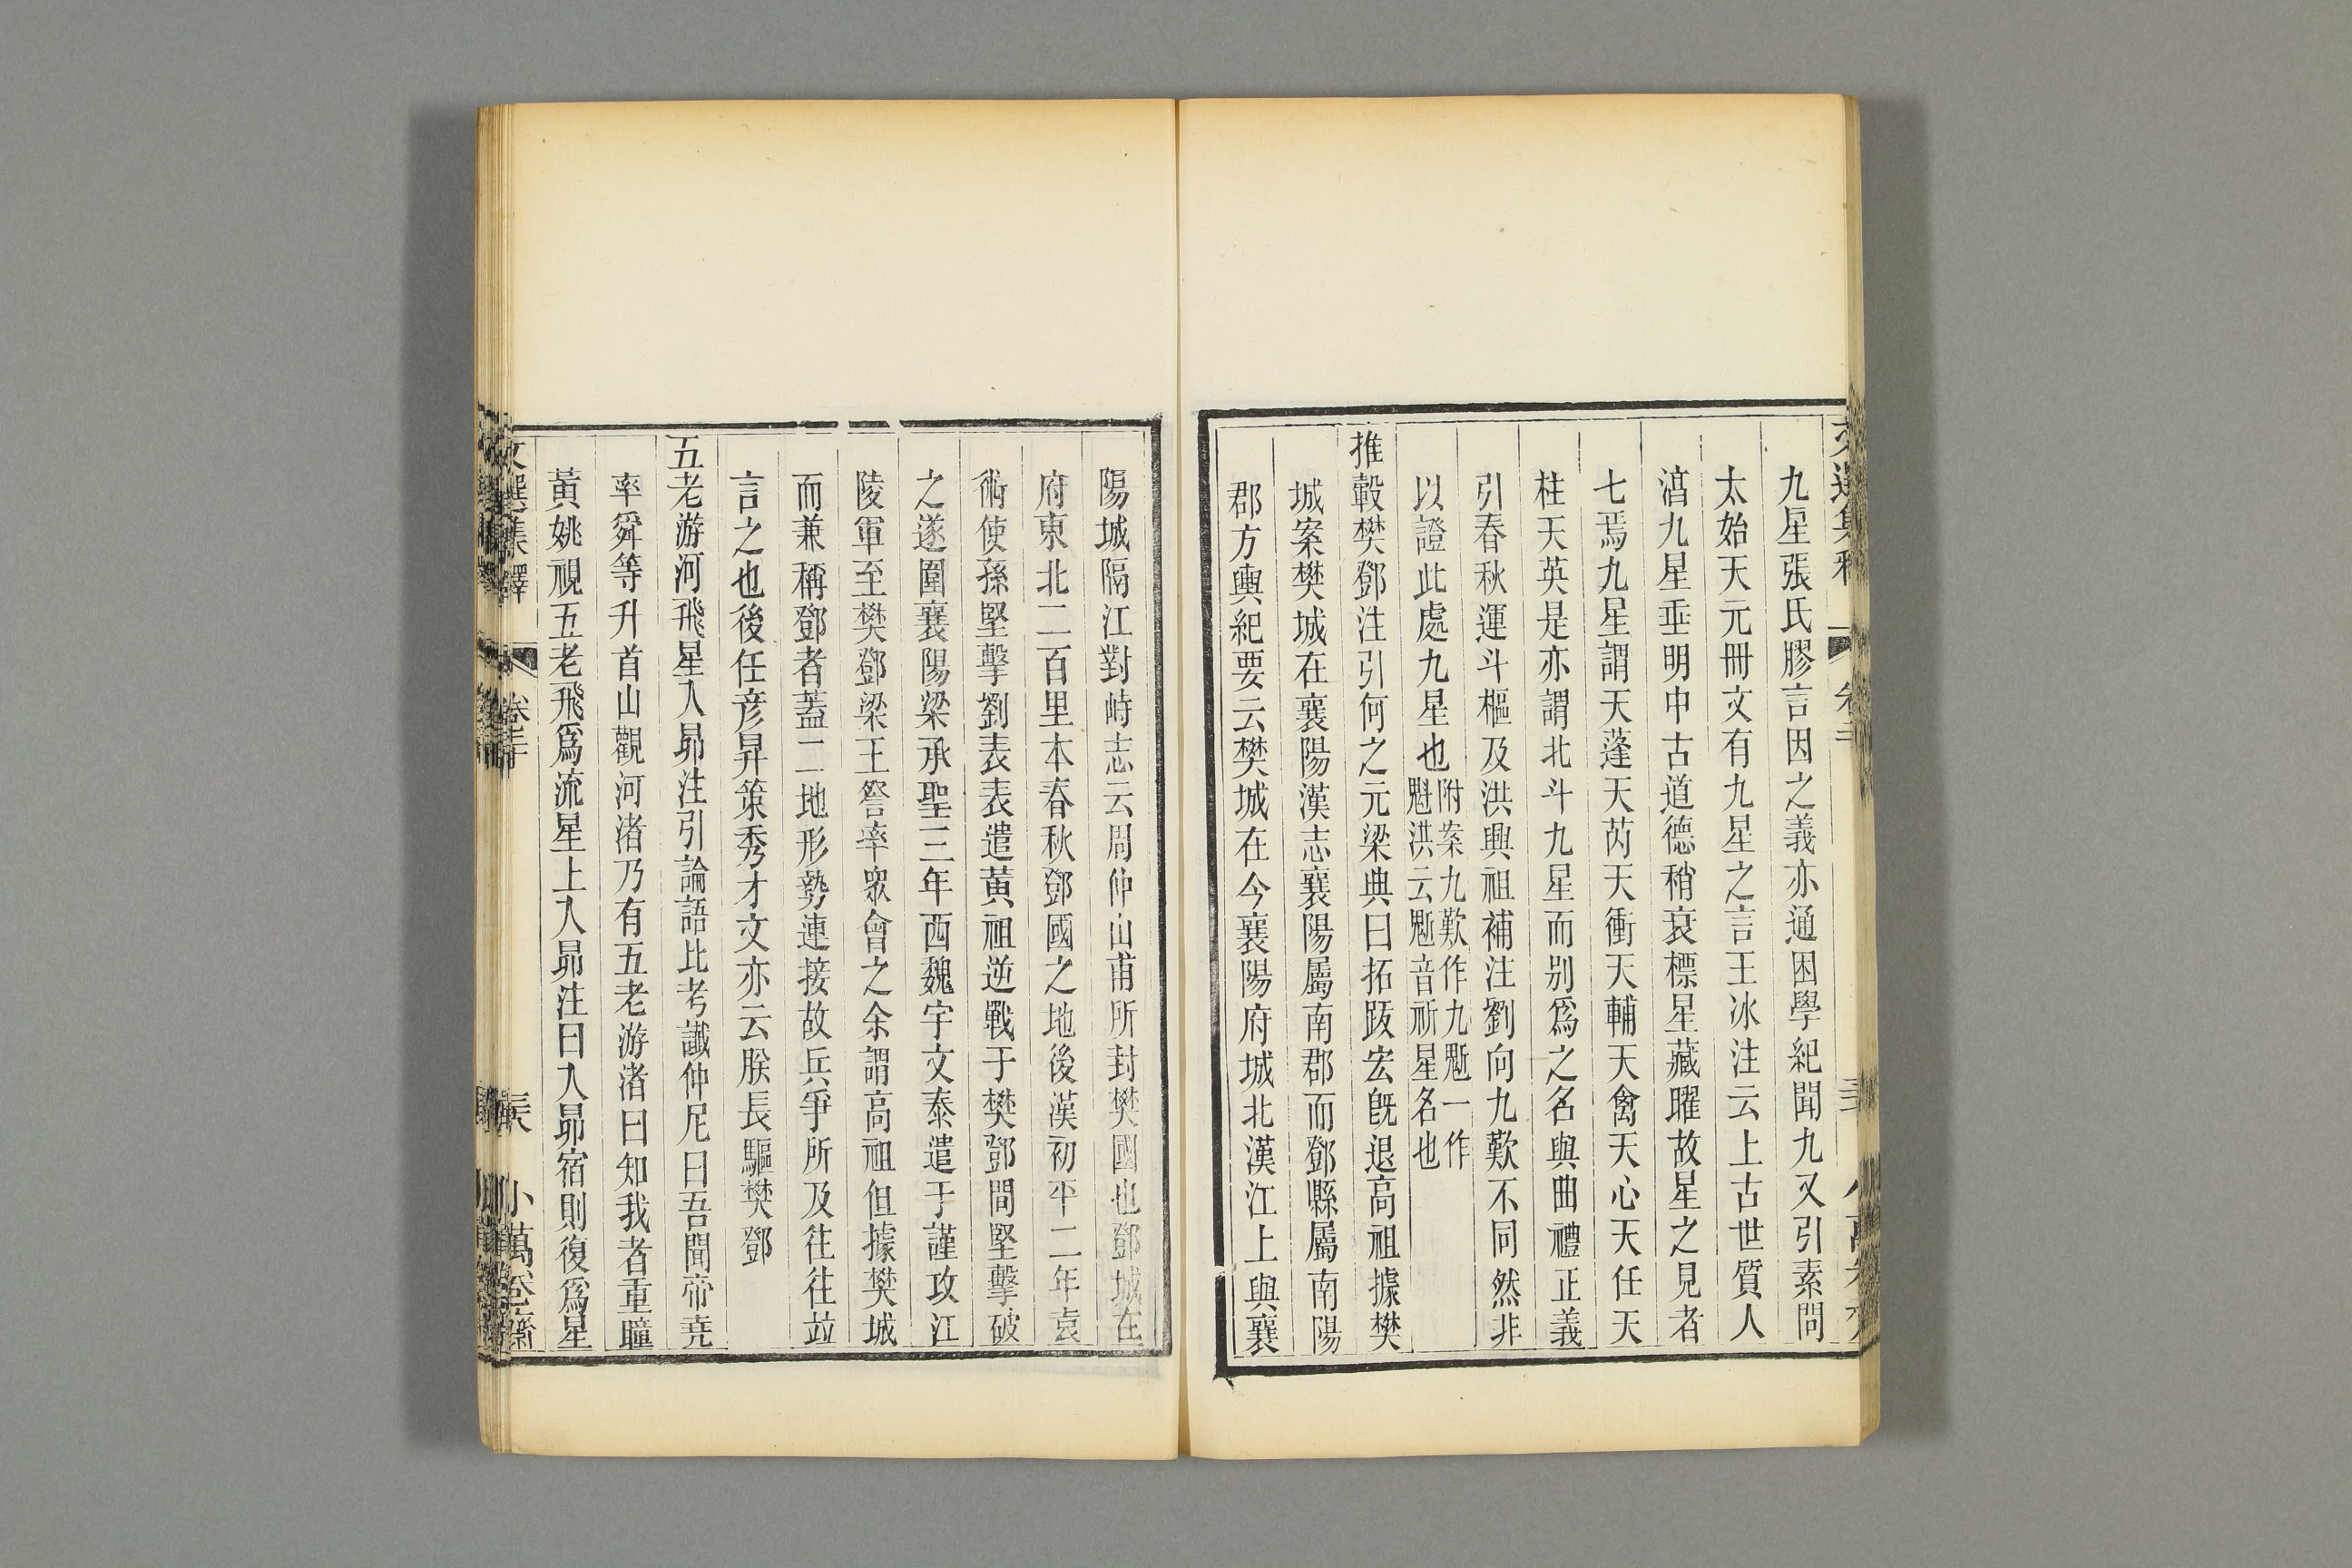 九星張氏膠言因之義亦通困學紀聞九又引素問
太始天元冊文有九星之言王冰注云上古世質人
湻九星垂明中古道德稍衰標星藏曜故星之見者
七焉九星謂天蓬天芮天衝天輔天禽天心天任天
柱天英是亦謂北斗九星而别爲之名與曲禮正義
引春秋運斗樞及洪興祖補注劉向九歎不同然非
以證此處九星也附案九歎作九魁一作
魁洪云魁音祈星名也
推轂樊鄧注引何之元梁典曰拓跋宏旣退高祖據樊
城案樊城在襄陽漢志襄陽屬南郡而鄧縣屬南陽
郡方輿紀要云樊城在今襄陽府城北漢江上與襄
陽城隔江對峙志云周仲山甫所封樊國也鄧城在
府東北二百里本春秋鄧國之地後漢初平二年袁
術使孫堅擊劉表表遣黃祖逆戰于樊鄧間堅擊破
之遂圍襄陽梁承聖三年西魏宇文泰遣于謹攻江
陵軍至樊鄧梁王詧率眾會之余謂高祖但據樊城
而兼稱鄧者蓋二地形勢連接故兵爭所及往往竝
言之也後任彥昇策秀才文亦云朕長驅樊鄧
五老游河飛星入昴注引論語比考讖仲尼曰吾聞帝堯
率舜等升首山觀河渚乃有五老游渚曰知我者重瞳
黃姚視五老飛爲流星上入昴注曰入昴宿則復爲星
文選集釋 卷二十 小萬卷齋